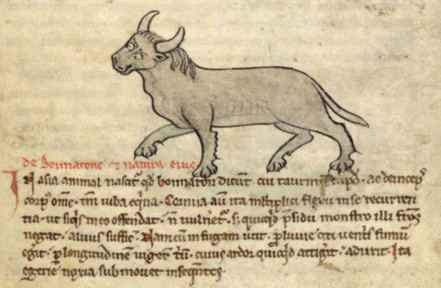 de Bonnacone & natura eius
In asia animal nascit' qd bonnacon dicunt cui taurinū caput · ac deinceps
corp' om̄e · tm̄ iuba eq̄na · Cornua aū ita multiplici flexu in se recurren
tia · ut siq's in eo offendat · n̄ vulnet' · s; quicqd p̄sidii monstro illi frons
negat · aluus sufficit · Nam cū in fugam vertit · p̱luuie citi ventis fimum
egerit p̱ longitudinem iuger̄ triū · cuius ardor quicqd attigerit · adurit · Ita
egerie noxia submovet insequentes ·